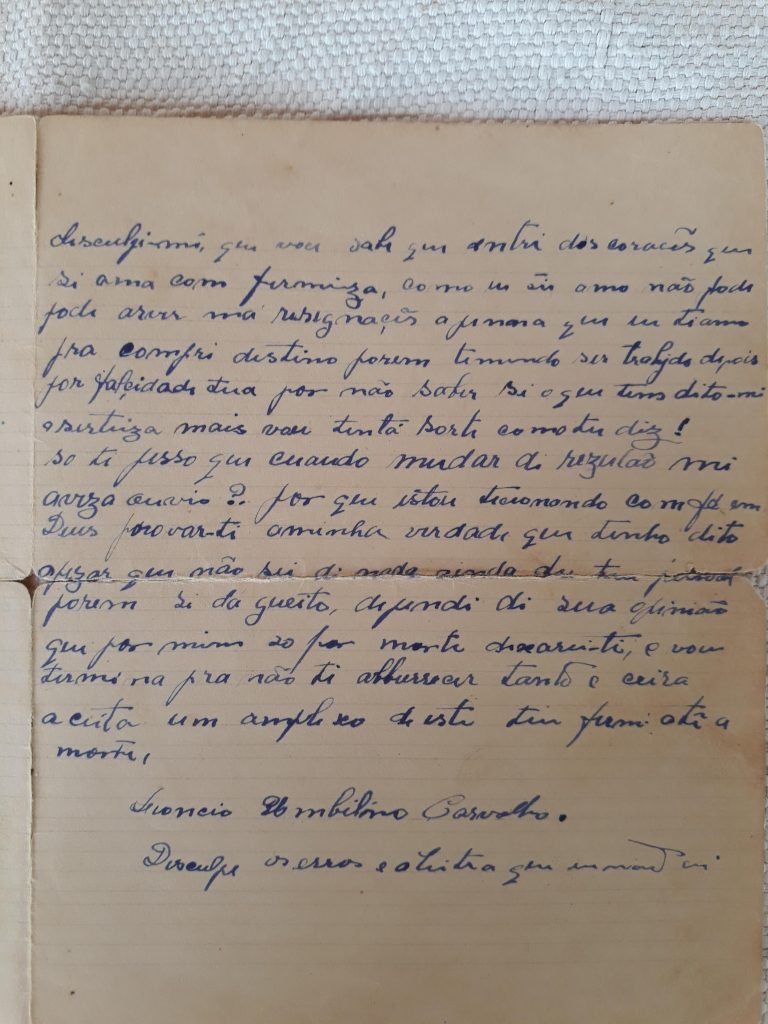 desculpi-mi, que voce sabe que entri dois coracões que
si ama com firmiza, como eu ti amo não pode
pode aver má resignação apenna que eu tiamo
pra compri destino porem temendo ser trahido depois
por falcidade tua por não saber si o que tens dito-mi
e serteiza mais vou tentá sorte como tu diz!
so ti pesso que cuando mudar di rezulão mi
aviza ouvio?. por que estou tencionando com fé em
Deus provar-ti aminha verdade que tenho dito
apezar que não sei di nada ainda do teu pessoal
porem si da gueito, dependi di sua opinião
que por mim so por morte dexarei-ti, e vou
termina pra não ti abburrecer tanto e ceira
aceita um amplexo deste teu firmi até a
morte,
Leoncio Umbilino Carvalho.
Desculpe os erros e a letra que eu não